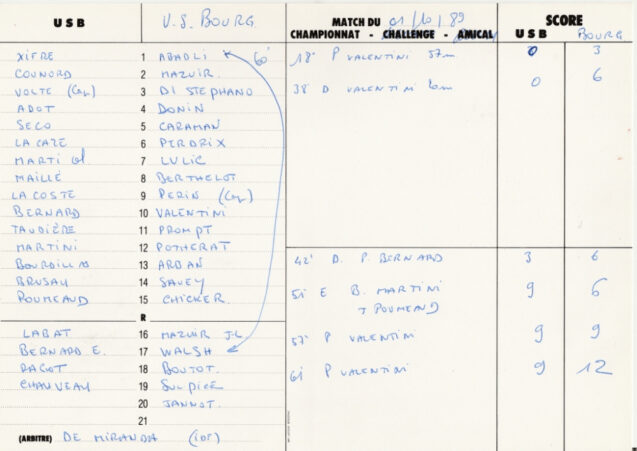 USB U.S. BOURG MATCH DU 01/10/89 SCORE
CHAMPIONNAT - CHALLENGE - AMICAL USB BOURG
XIFRE 1 ABADLI 60' 18' P VALENTINI 57m 0 3
COUNORD 2 MAZUIR. 6
VOLTE (Cap) 3 DI STEPHANO 38' D VALENTINI 6m 0
ADOT 4 DONIN
SECO 5 CARAMAN
LA CAZE 6 PERDRIX
MARTI 7 LULIC
MAILLÉ 8 BERTHELOT
LA COSTE 9 PERIN (Cap)
BERNARD 10 VALENTINI
TAUDIÈRE 11 PROMPT
MARTINI 12 POTHERAT 42' D. P. BERNARD 3 6
13 ARBAN
BRUSAU 14 SAVEY 51' E B. MARTINI 9 6
POUMEAUD 15 CHICKER. T POUMEAUD
R
LABAT 16 MAZUIR J-L 57' P VALENTINI 9 9
BERNARD E. 17 WALSH
RAGOT 18 BOUTOT. 61' P VALENTINI 9 12
CHAUVEAU 19 SULPICE
20 JANNOT.
21
(ARBITRE) DE MIRANDA (IDF)